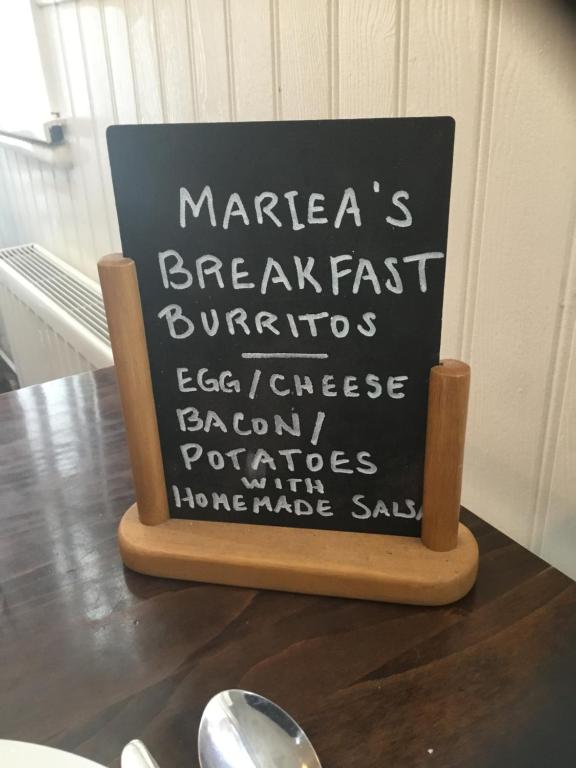 MARIEA'S
BREAKFAST
BURRITOS
EGG/CHEESE
BACON/
POTATOES
WITH
HOMEMADE SALSA